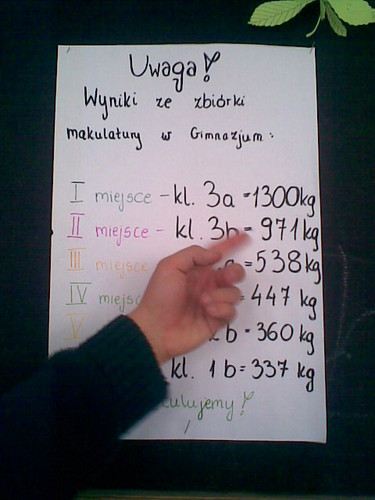 Uwaga!
Wyniki ze zbiórki
makulatury w Gimnazjum:
I miejsce - kl. 3a = 1300kg
II miejsce - kl. 3b = 971kg
III miejsce a = 538kg
IV miejsc = 447 kg
V b = 360kg
kl. 1b = 337kg
ulujemy!